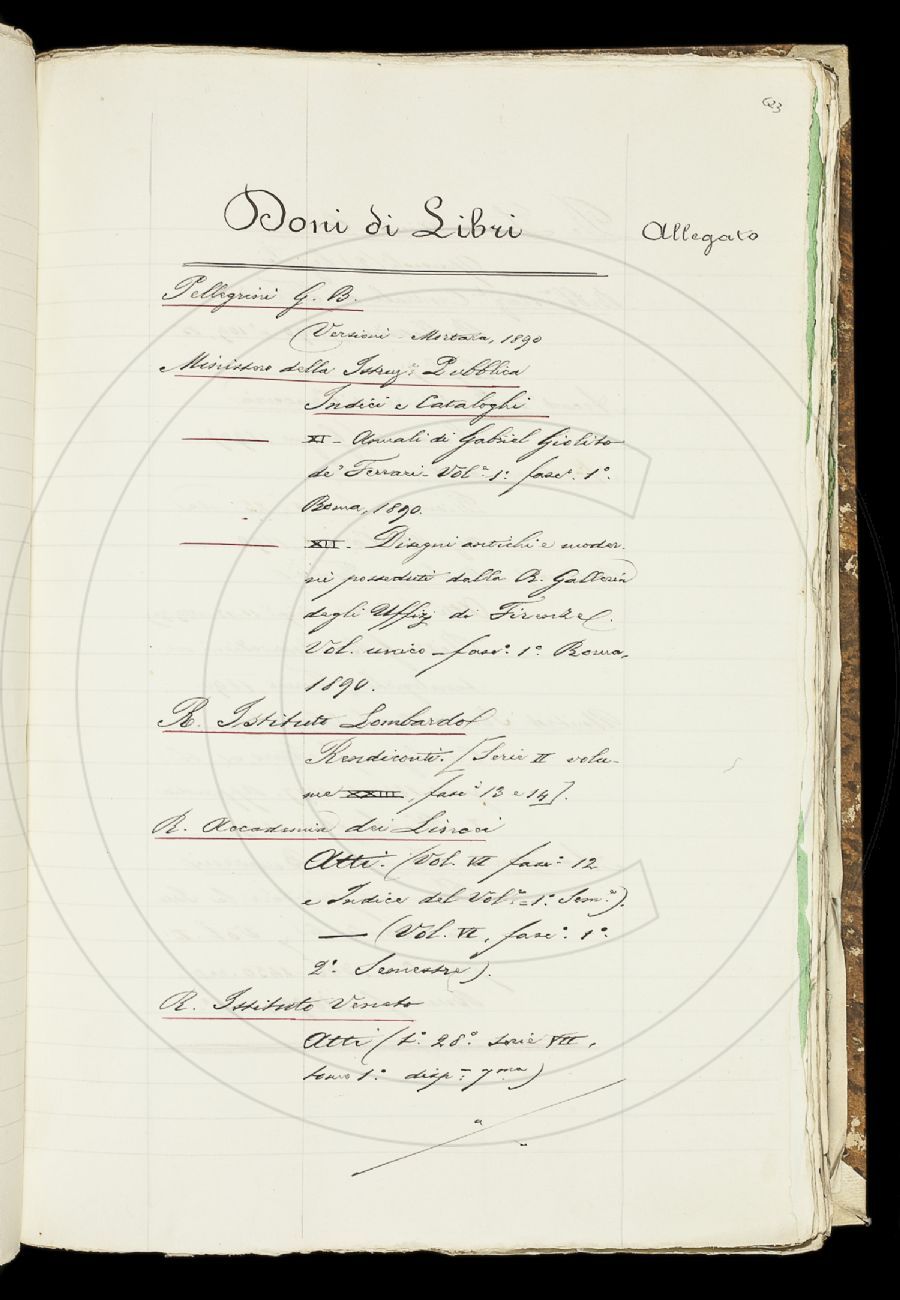 623
Doni di Libri
Allegato
Pellegrini G. B.
(Versioni - Mortara, 1890
Ministero della Istruz.e Pubblica
Indici e Cataloghi
XI - Annali di Gabriel Giolito
de' Ferrari - Vol.e 1.° fasc.° 1°.
Roma, 1890.
XII - Disegni antichi e moder-
ni posseduti dalla R. Galleria
degli Uffizj di Firenze.
Vol. unico - fasc.° 1° Roma,
1890.
R. Istituto Lombardo
Rendiconti. [Serie II volu-
me XXIII, fasc.i 13 e 14].
R. Accademia dei Lincei
Atti. (Vol. VI fasc.° 12
e Indice del Vol.e = 1.° Sem.e).
— (Vol. VI, fasc.° 1°
2.° Semestre).
R. Istituto Veneto
Atti (t.° 28° serie VII,
tomo 1.° disp.a 7ma)